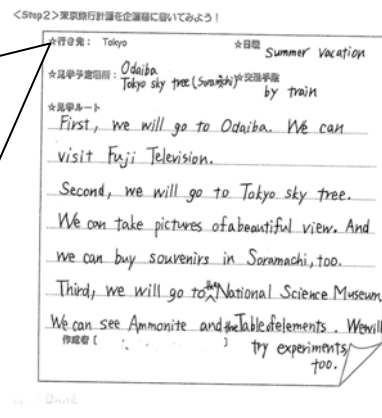 <Step2>東京旅行計画を企画書に書いてみよう！
☆行き先： Tokyo
☆日程 Summer vacation
☆見学予定場所： Odaiba
Tokyo sky tree (Soramachi)
☆交通手段 by train
☆見学ルート
First, we will go to Odaiba. We can
visit Fuji Television.
Second, we will go to Tokyo sky tree.
We can take pictures of a beautiful view. And
we can buy souvenirs in Soramachi, too.
Third, we will go to the National Science Museum
We can see Ammonite and the Table of elements. We will
try experiments
too.
作成者 [ ]